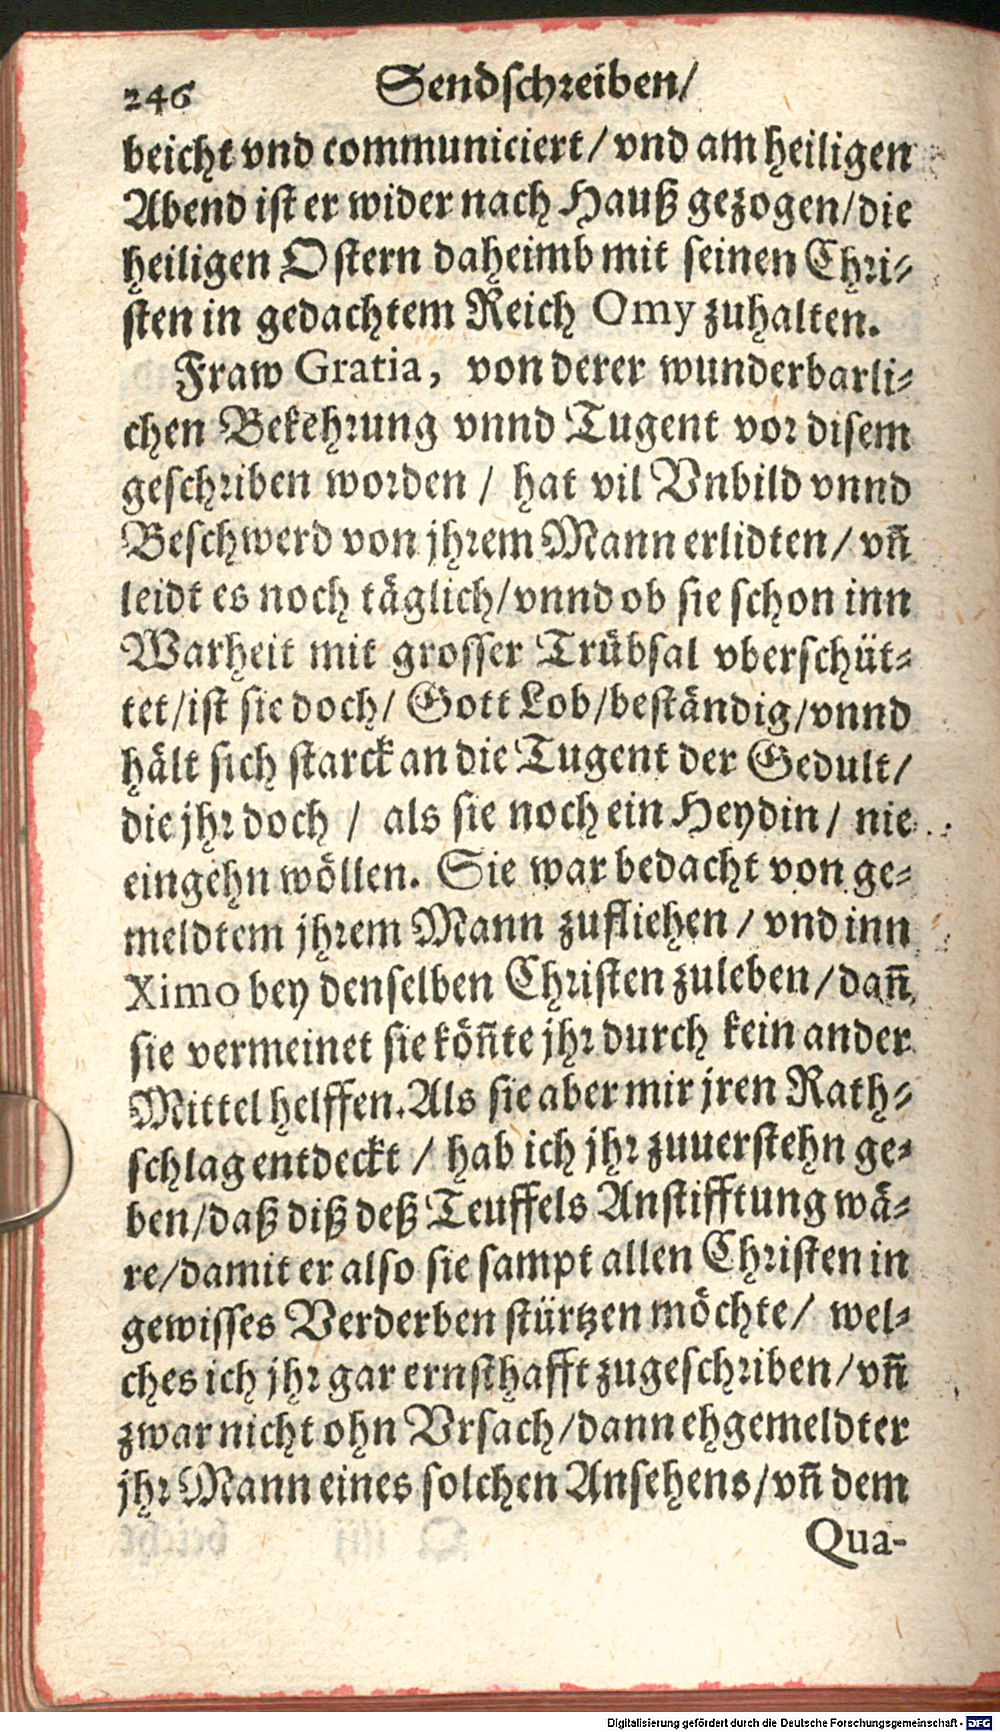 246 Sendschreiben/
beicht vnd communiciert/ vnd am heiligen
Abend ist er wider nach Hauß gezogen/die
heiligen Ostern daheimb mit seinen Chri-
sten in gedachtem Reich Omy zuhalten.
Fraw Gratia, von derer wunderbarli-
chen Bekehrung vnnd Tugent vor disem
geschriben worden / hat vil Vnbild vnnd
Beschwerd von jhrem Mann erlidten/ vñ
leidt es noch täglich/vnnd ob sie schon inn
Warheit mit grosser Trübsal vberschüt-
tet/ist sie doch/ Gott Lob/beständig/vnnd
hält sich starck an die Tugent der Gedult/
die jhr doch / als sie noch ein Heydin/ nie
eingehn wöllen. Sie war bedacht von ge-
meldtem jhrem Mann zufliehen/ vnd inn
Ximo bey denselben Christen zuleben/dañ
sie vermeinet sie köñte jhr durch kein ander
Mittel helffen. Als sie aber mir jren Rath-
schlag entdeckt / hab ich jhr zuuerstehn ge-
ben/daß diß deß Teuffels Anstifftung wä-
re/damit er also sie sampt allen Christen in
gewisses Verderben stürtzen möchte/ wel-
ches ich jhr gar ernsthafft zugeschriben/vñ
zwar nicht ohn Vrsach/dann ehgemeldter
jhr Mann eines solchen Ansehens/vñ dem
Qua-
Digitalisierung gefördert durch die Deutsche Forschungsgemeinschaft - DFG